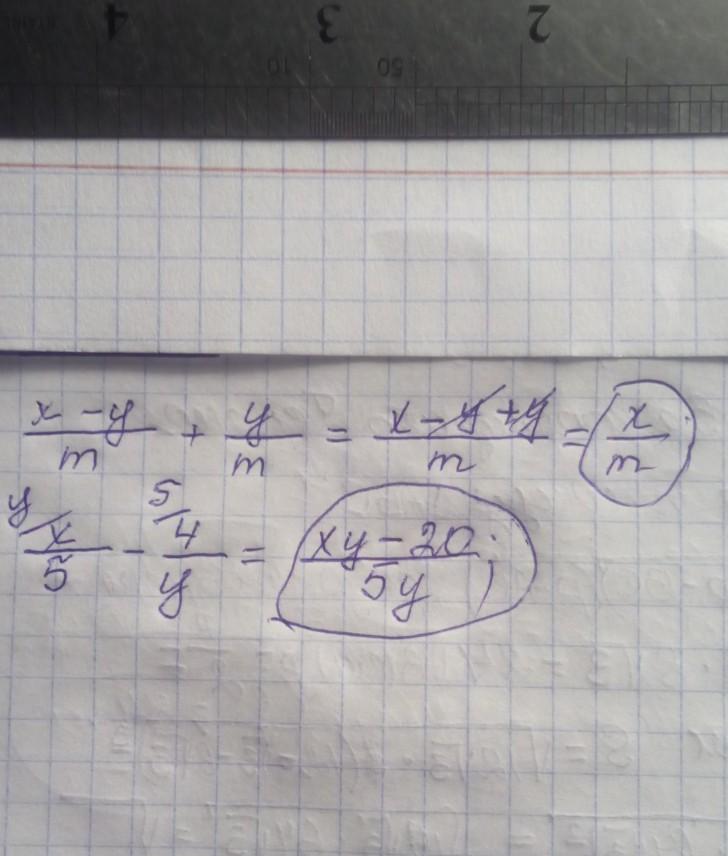 4 3 2
10 50
x - y / m + y / m = x - y + y / m = x / m
y/ x / 5 - 5/ 4 / y = xy - 20 / 5y ;